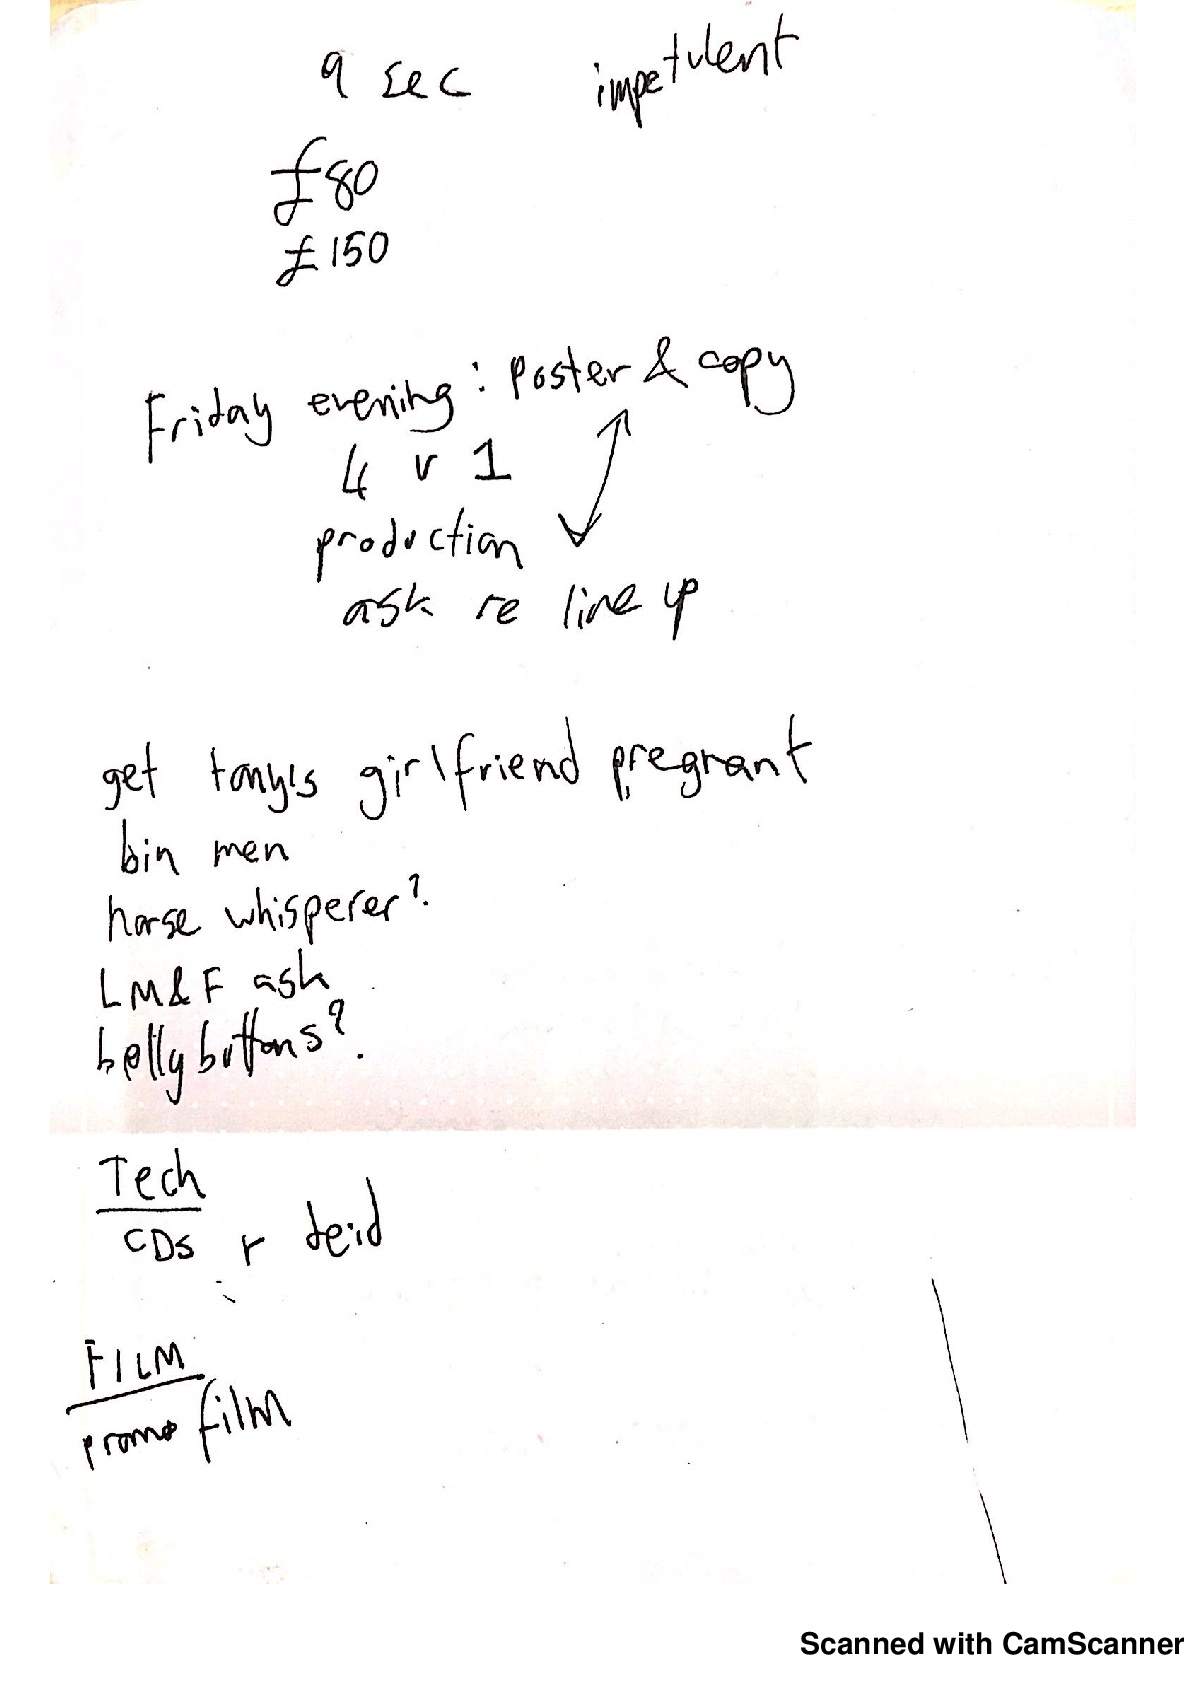 9 sec impetulent
£80
£150
Friday evening: poster & copy
4 v 1
production
ask re line up
get tony's girlfriend pregnant
bin men
horse whisperer?
LM&F ask
belly buttons?
Tech
CDs r deid
FILM
promo film
Scanned with CamScanner